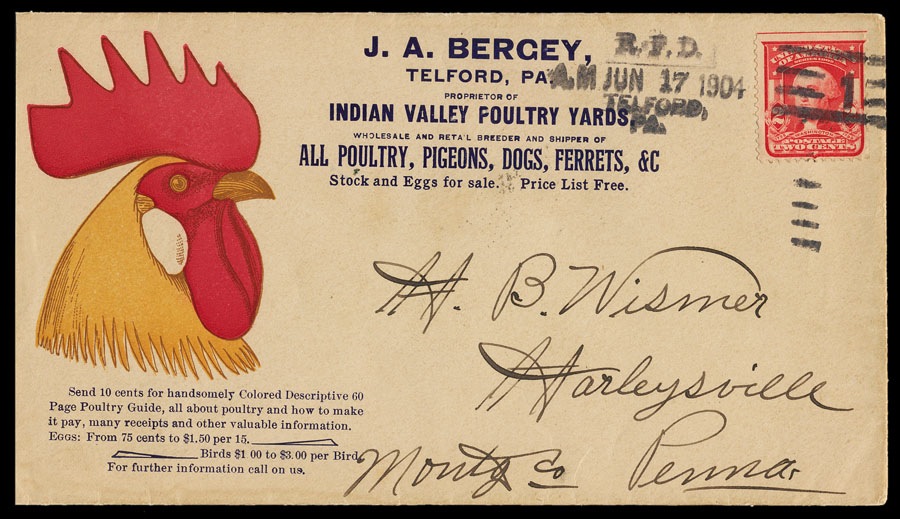 J. A. BERGEY,
TELFORD, PA.
PROPRIETOR OF
INDIAN VALLEY POULTRY YARDS,
WHOLESALE AND RETAIL BREEDER AND SHIPPER OF
ALL POULTRY, PIGEONS, DOGS, FERRETS, &C
Stock and Eggs for sale. Price List Free.
R.F.D.
A.M JUN 17 1904
TELFORD,
PA.
1
WASHINGTON
POSTAGE
TWO CENTS
H. B. Wismer
Harleysville
Montg Co Penna.
Send 10 cents for handsomely Colored Descriptive 60
Page Poultry Guide, all about poultry and how to make
it pay, many receipts and other valuable information.
EGGS: From 75 cents to $1.50 per 15.
Birds $1 00 to $3.00 per Bird.
For further information call on us.